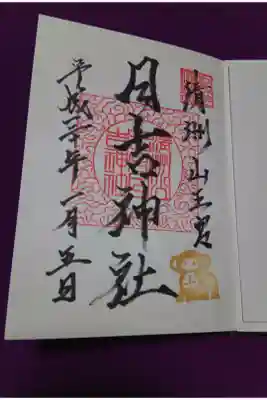 清洲山王宮
日吉神社
平成年一月五日